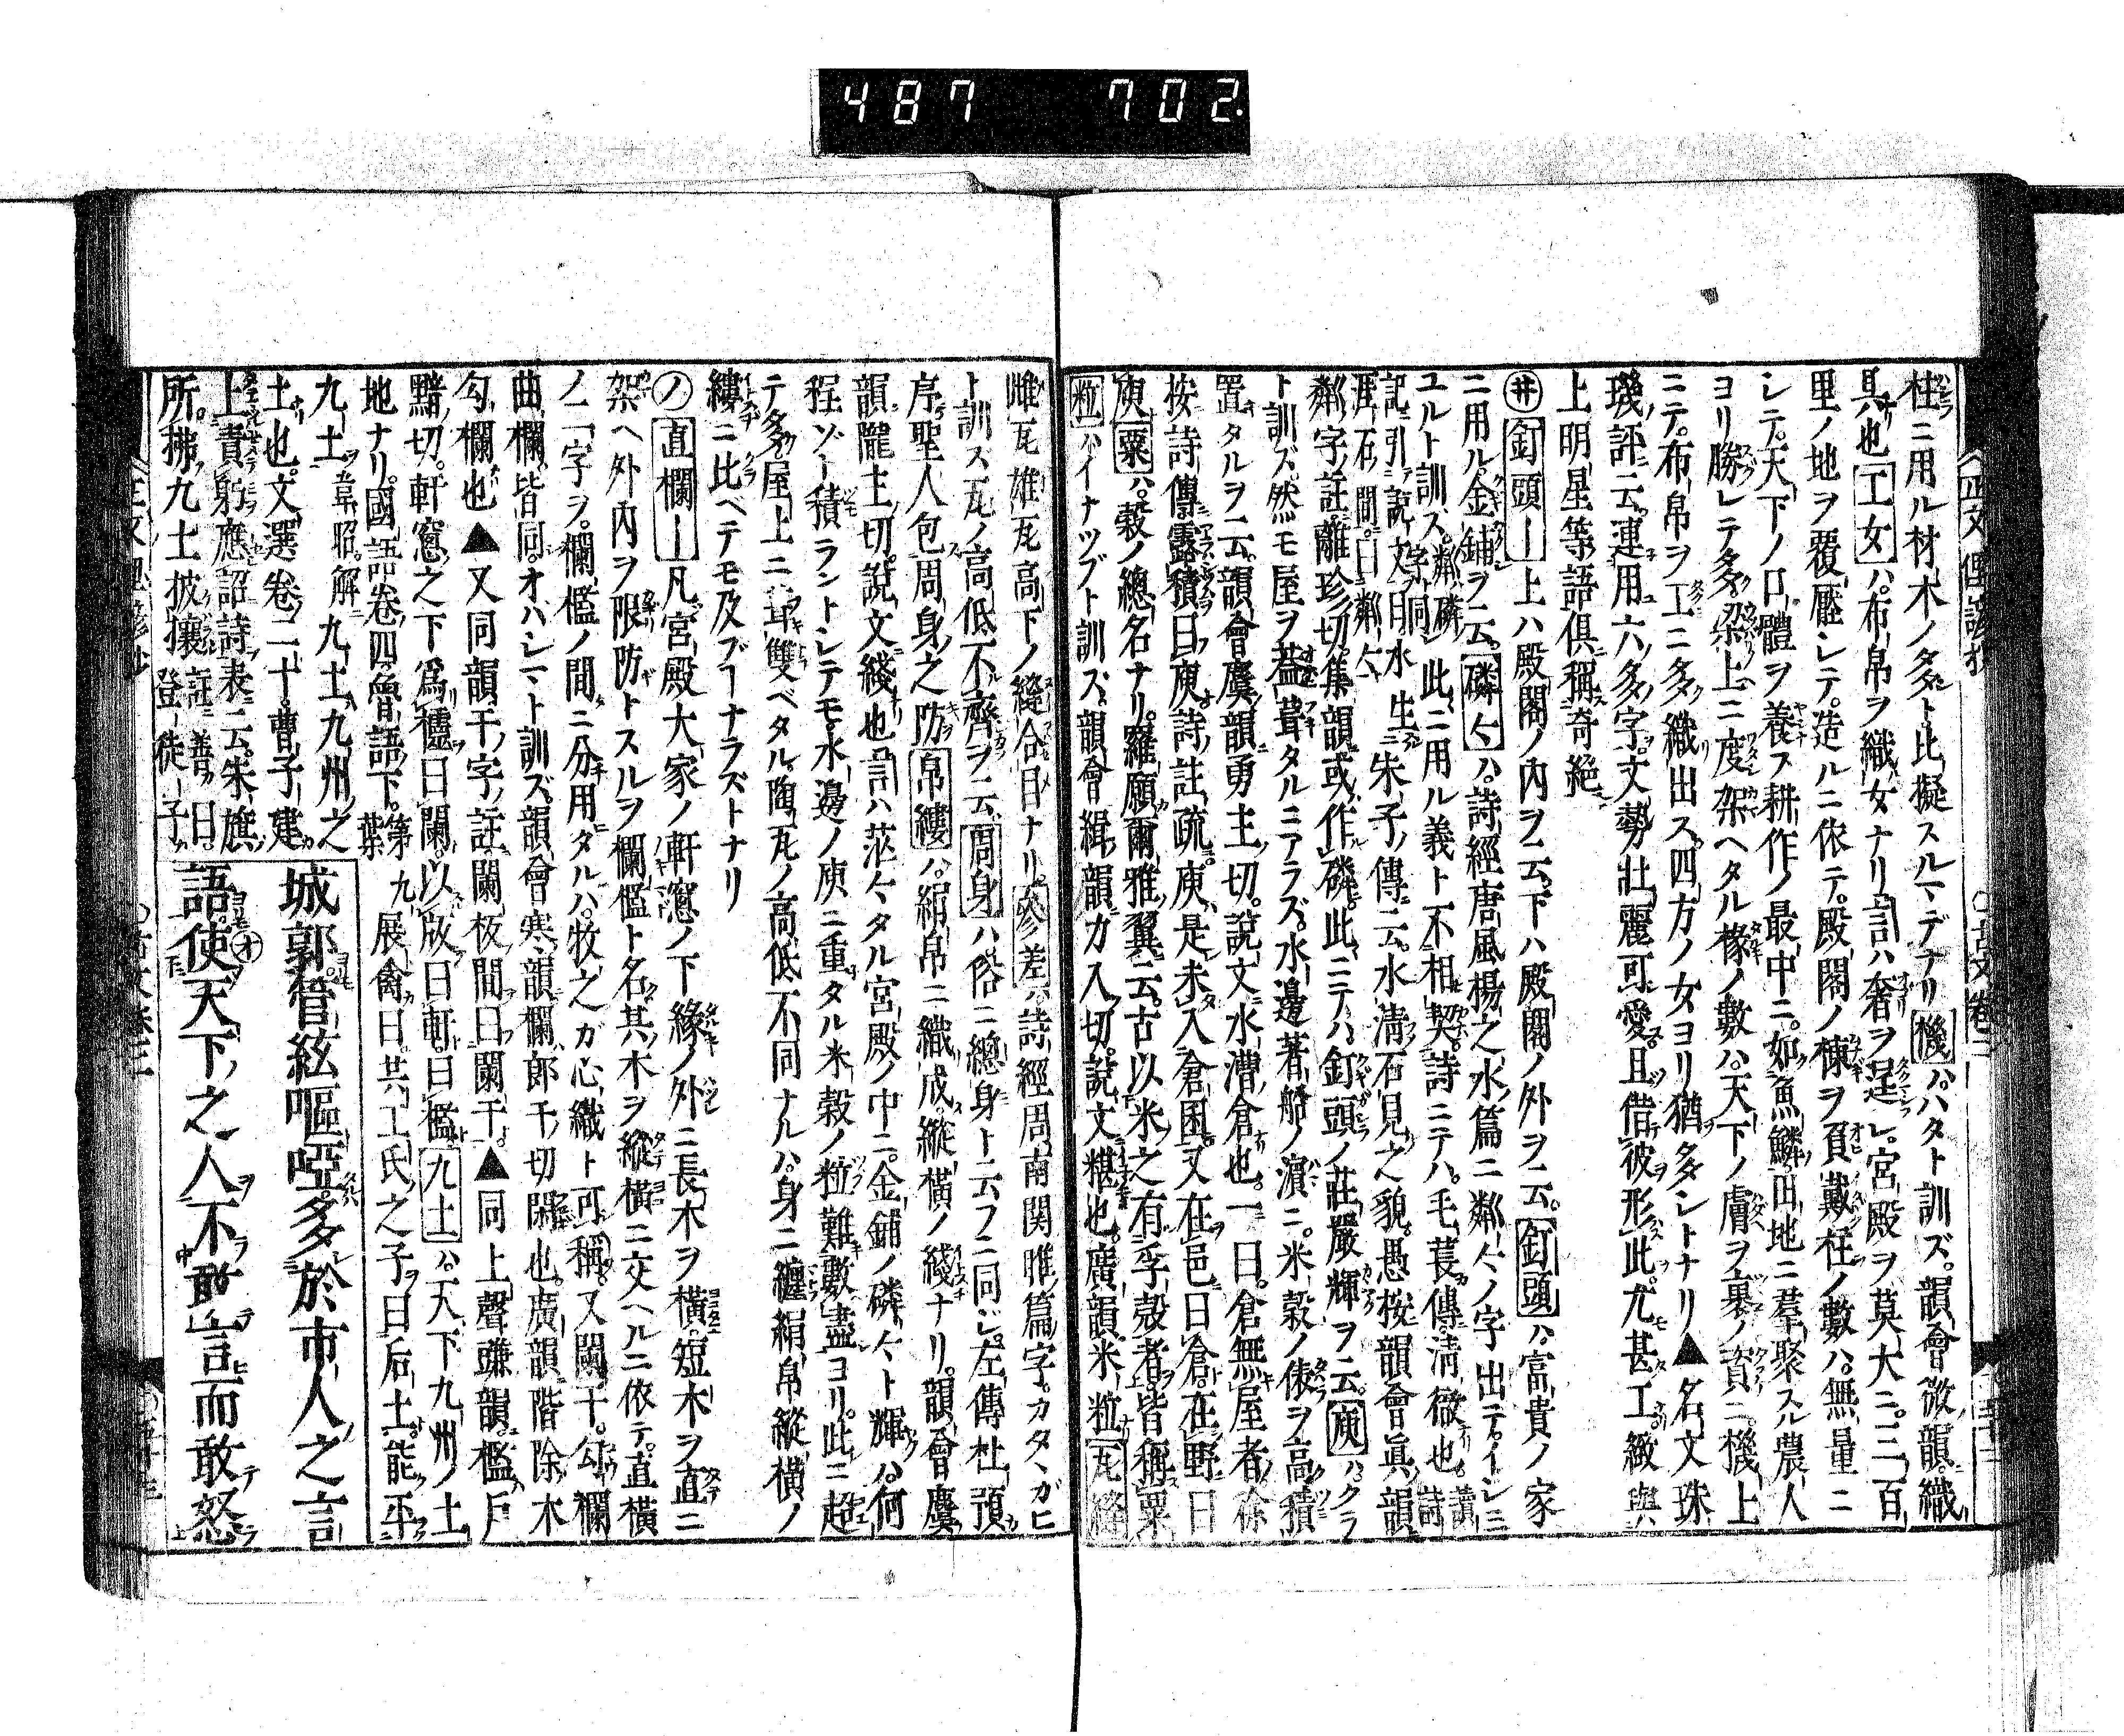 487 702.
柱ニ用ル材木ノ多ト比擬スルマデナリ機ハ。ハタト訓ズ。韻會微韻。織
具也工女ハ。布帛ヲ織女ナリ言ハ奢ヲ逞シ。宮殿ヲ莫大ニ。三百
里ノ地ヲ覆壓シテ。造ルニ依テ。殿閣ノ棟ヲ負戴柱ノ數ハ。無量ニ
シテ。天下ノ口體ヲ養ス耕作ノ最中ニ。如魚鱗田地ニ羣聚スル農人
ヨリ勝レテ多。梁上ニ度架ヘタル椽ノ數ハ。天下ノ膚ヲ裹ノ資ニ。機上
ニテ。布帛ヲ工ニ多織出ス。四方ノ女ヨリ猶多シトナリ▲名文珠
璣評云。連用六多字。文勢壯麗可愛。且借彼形此。尤甚工緻與
上明星等語俱稱奇絶
㊉釘頭ー上ハ殿閣ノ內ヲ云。下ハ殿閣ノ外ヲ云。釘頭ハ。富貴ノ家
ニ用ル。金鋪ヲ云。磷々ハ。詩經唐風楊之水篇ニ粼々ノ字出テ。イシミ
ユルト訓ス。粼磷字同シ此ニ用ル義ト不相契。詩ニテハ。毛萇傳淸徹也。讀詩
記ニ引說文曰水生涯石間曰粼々朱子傳云。水淸石見之貌。愚按韻會眞韻
粼字註。離珍切。集韻或作磷。此ニテハ。釘頭ノ莊嚴輝ヲ云。庾ハクラ
ト訓ズ。然モ屋ヲ蓋葺タルニアラズ。水邊著船ノ濱ニ。米穀ノ俵ヲ高積
置タルヲ云。韻會麌韻勇主切。說文水漕倉也。一曰。倉無屋者徐
按詩傳露積曰庾。詩註疏。庾是未入倉囷。又在邑曰倉。在野曰
庾粟ハ。穀ノ總名ナリ。羅願爾雅翼云。古以米之有孚殼者。皆稱粟
粒ハイナツブト訓ズ。韻會緝韻力入切。說文糂也。廣韻米粒瓦縫
雌瓦雄瓦高下ノ縫合目ナリ。參差詩經周南関雎篇字。カタ〻ガヒ
ト訓ス瓦ノ高低不齊ヲ云周身ハ俗ニ總身ト云フニ同ジ。左傳杜預
序聖人包周身之防帛縷ハ。絹帛ニ織成縱橫ノ綫ナリ。韻會麌
韻隴主切。說文綫也言ハ茫々タル宮殿ノ中ニ。金鋪ノ磷々ト輝ハ。何
程ゾー積ラントシテモ。水邊ノ庾ニ重タル米穀ノ粒難數盡ヨリ。此ニ超
テ多。屋上ニ葺雙ベタル陶瓦ノ高低不同ナルハ。身ニ纏絹帛縱橫ノ
縷ニ比ベテモ及ブーナラズトナリ
ノ直欄ー凡宮殿大家ノ軒窓ノ下緣ノ外ニ長木ヲ橫。短木ヲ直ニ
架ヘ外內ヲ限防トスルヲ欄檻ト名其木ヲ縱橫ニ交ヘルニ依テ。直橫
ノ二字ヲ。欄檻ノ間ニ分用タルハ。牧之ガ心織ト可稱。又闌干。勾欄
曲欄。皆同。オハシマト訓ズ。韻會寒韻欄郎干切閑也。廣韻階除木
勾欄也▲又同韻干字註闌板間曰闌干。▲同上聲豏韻。檻戶
黯切。軒窓之下爲櫺曰闌。以版曰軒。曰檻九土ハ。天下九州ノ土
地ナリ。國語卷四魯語下。第九葉展禽曰。共工氏之子曰后土。能平
九土韋昭解九土九州之
土也。文選卷二十。曹子建
上責躬應詔詩表云。朱旗
所拂九土披攘註善曰。登徒子
城郭管絃嘔啞多於市人之言
語使天下之人不敢言而敢怒